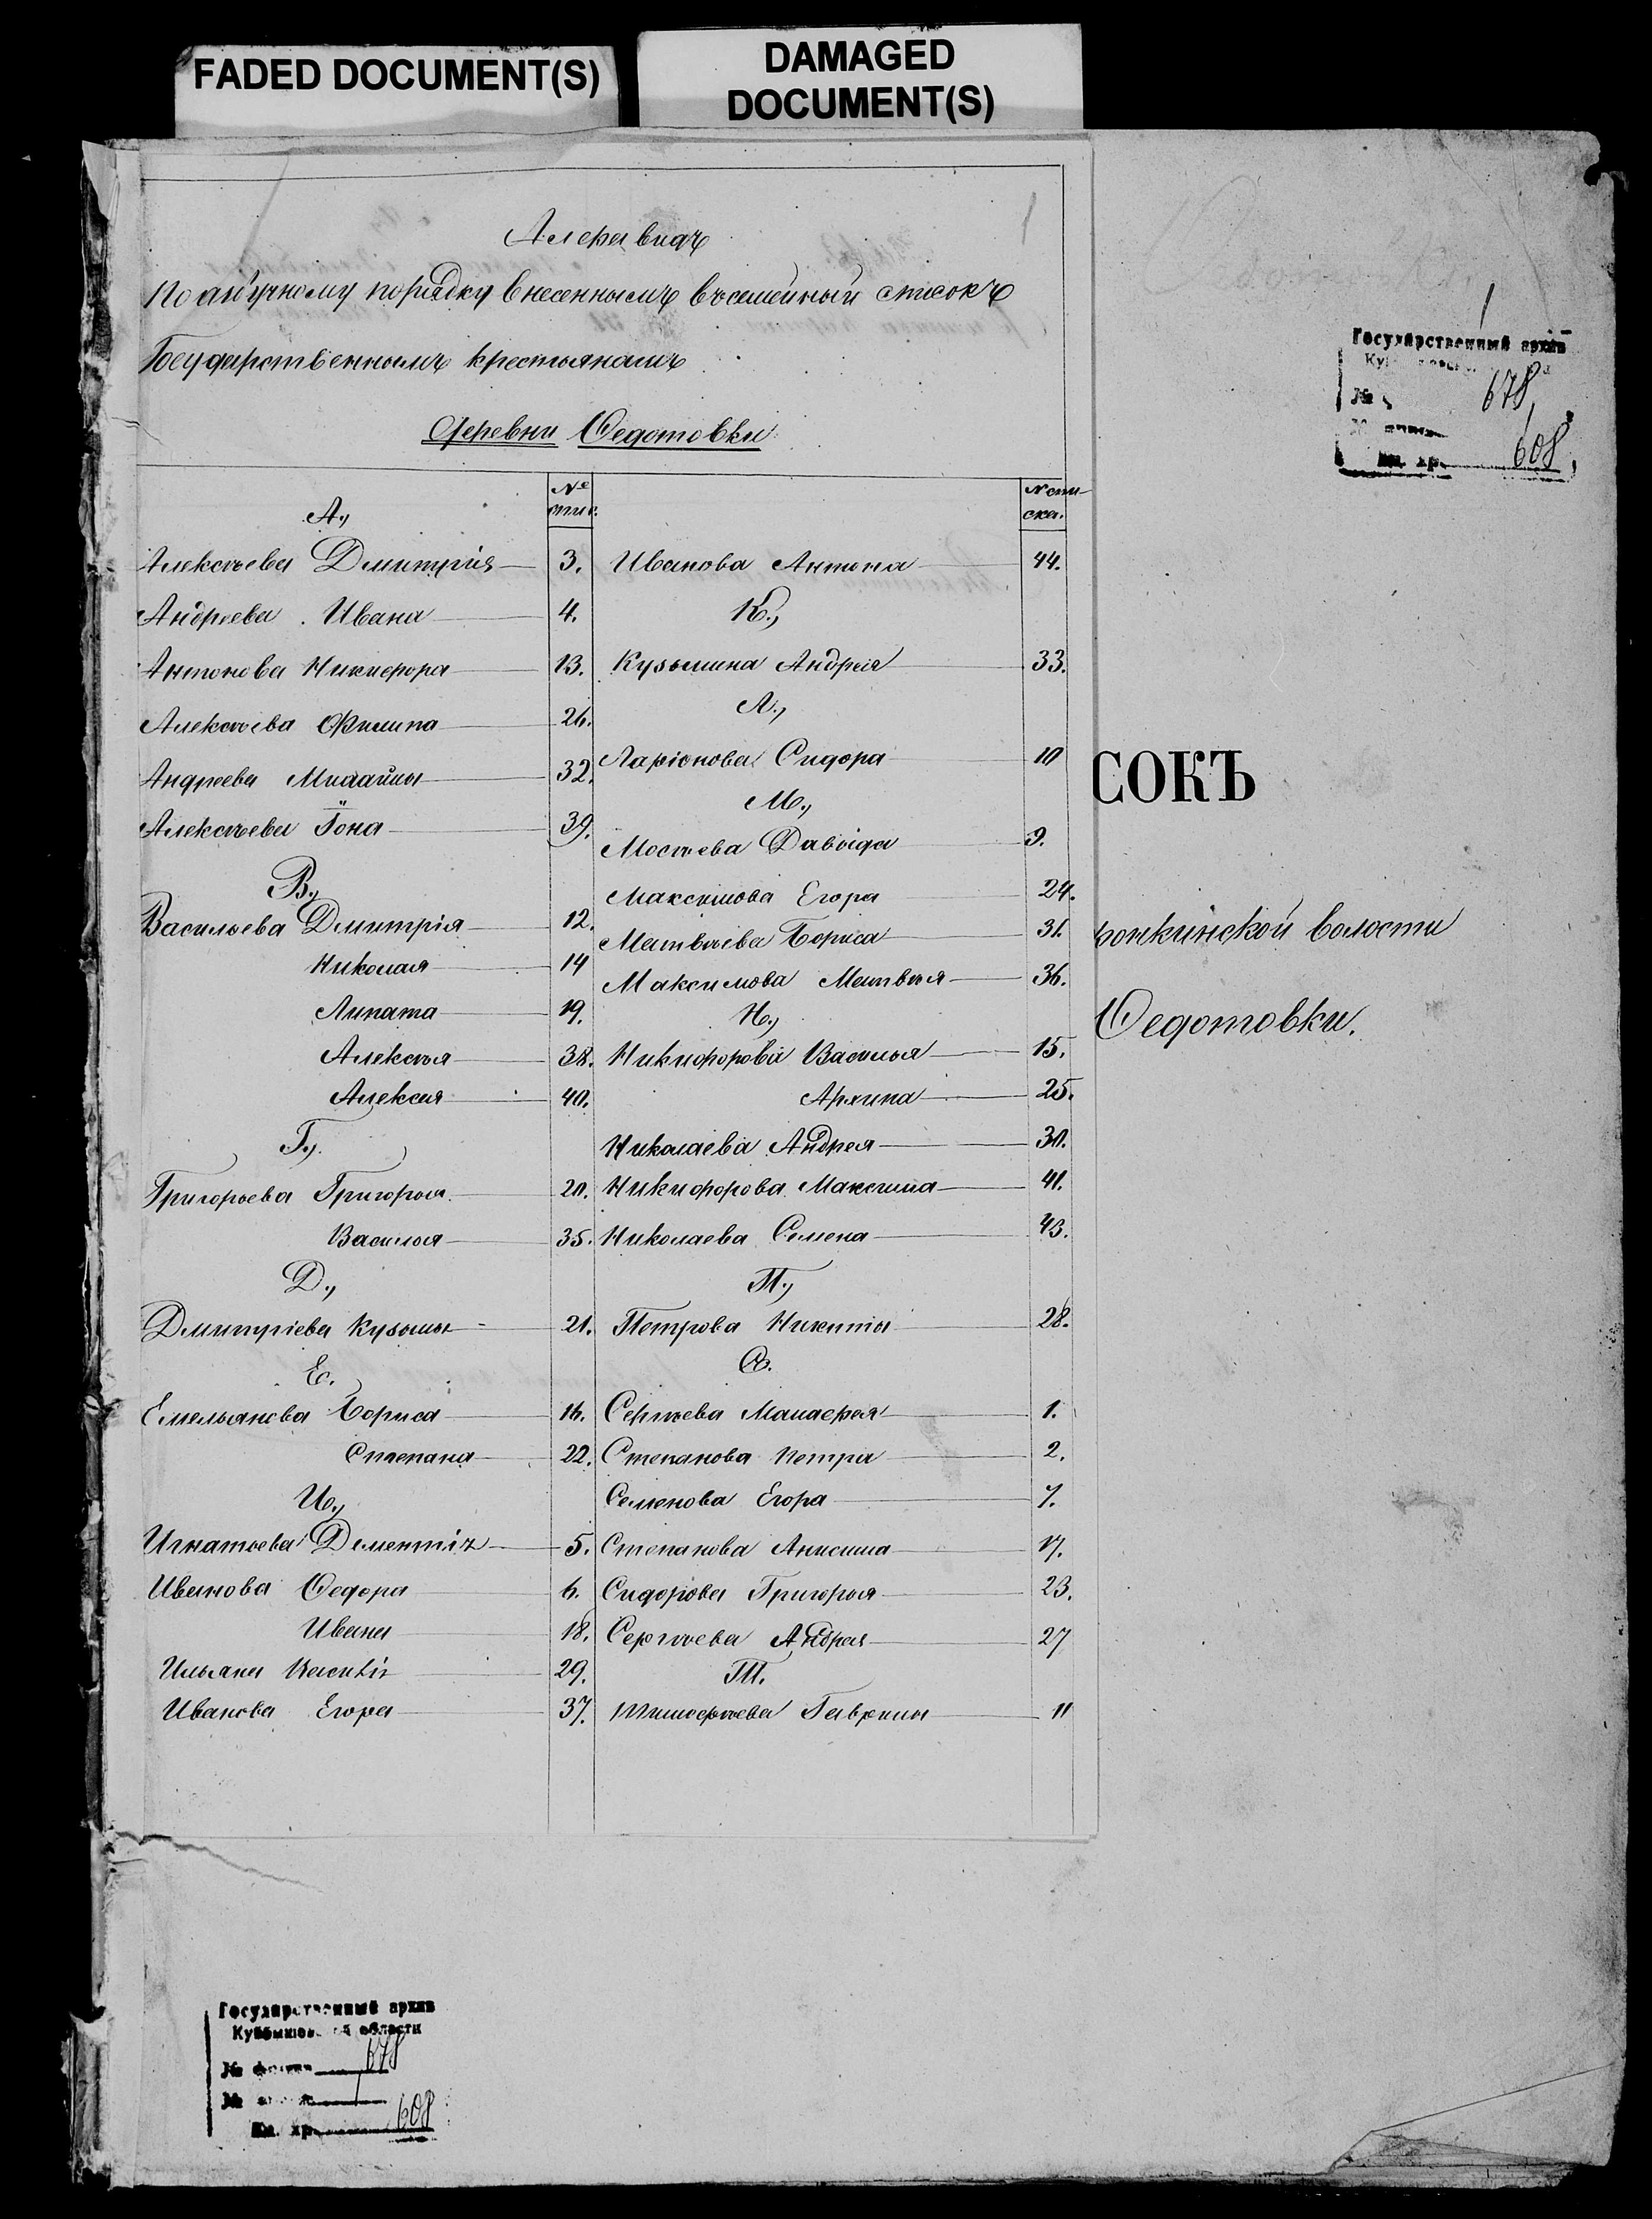 FADED DOCUMENT(S)
DAMAGED
DOCUMENT(S)
Алфавидъ
По азбучному порядку внесеннымъ въ семейный списокъ
Государственнымъ крестьянамъ
Деревни Ѳедотовки
№
спис.
А.,
Алексѣева Дмитрія 3.
Андреева Ивана 4.
Антонова Никиефора 13.
Алексѣева Филипа 26.
Андреева Михайлы 32.
Алексѣева Іона 39.
В.,
Васильева Дмитрія 12.
Николая 14
Липата 19.
Алексѣя 38.
Алексея 40.
Г.,
Григорьева Григорья 20.
Василья 35.
Д.,
Дмитріева Кузьмы 21.
Е.
Емельянова Бориса 16.
Степана 22.
И.,
Игнатьева Дементія 5.
Иванова Ѳедора 6.
Ивана 18.
Ильина 29.
Иванова Егора 37.
№ спи-
ска.
Иванова Антона 44.
К.,
Кузьмина Андрея 33.
Л.,
Ларіонова Сидора 10
М.,
Мосѣева Давыда 9.
Максимова Егора 24.
Матвѣева Бориса 31.
Максимова Матвѣя 36.
Н.,
Никифорова Василья 15.
Архипа 25.
Николаева Андрея 30.
Никифорова Максима 41.
Николаева Семена 43.
П.,
Петрова Никиты 28.
С.
Сергѣева Манаефея 1.
Степанова Петра 2.
Семенова Егора 7.
Степанова Анисима 17.
Сидорова Григорья 23.
Сергѣева Андрея 27
Т.
Тимофѣева Гаврилы 11
1
Государственный архив
№ 678
1
Ед. хр. 608
СОКЪ
волости
Ѳедотовки.
Государственный архив
Куйбышевской области
№ фонда 678
№ 1
Ед. хр. 608